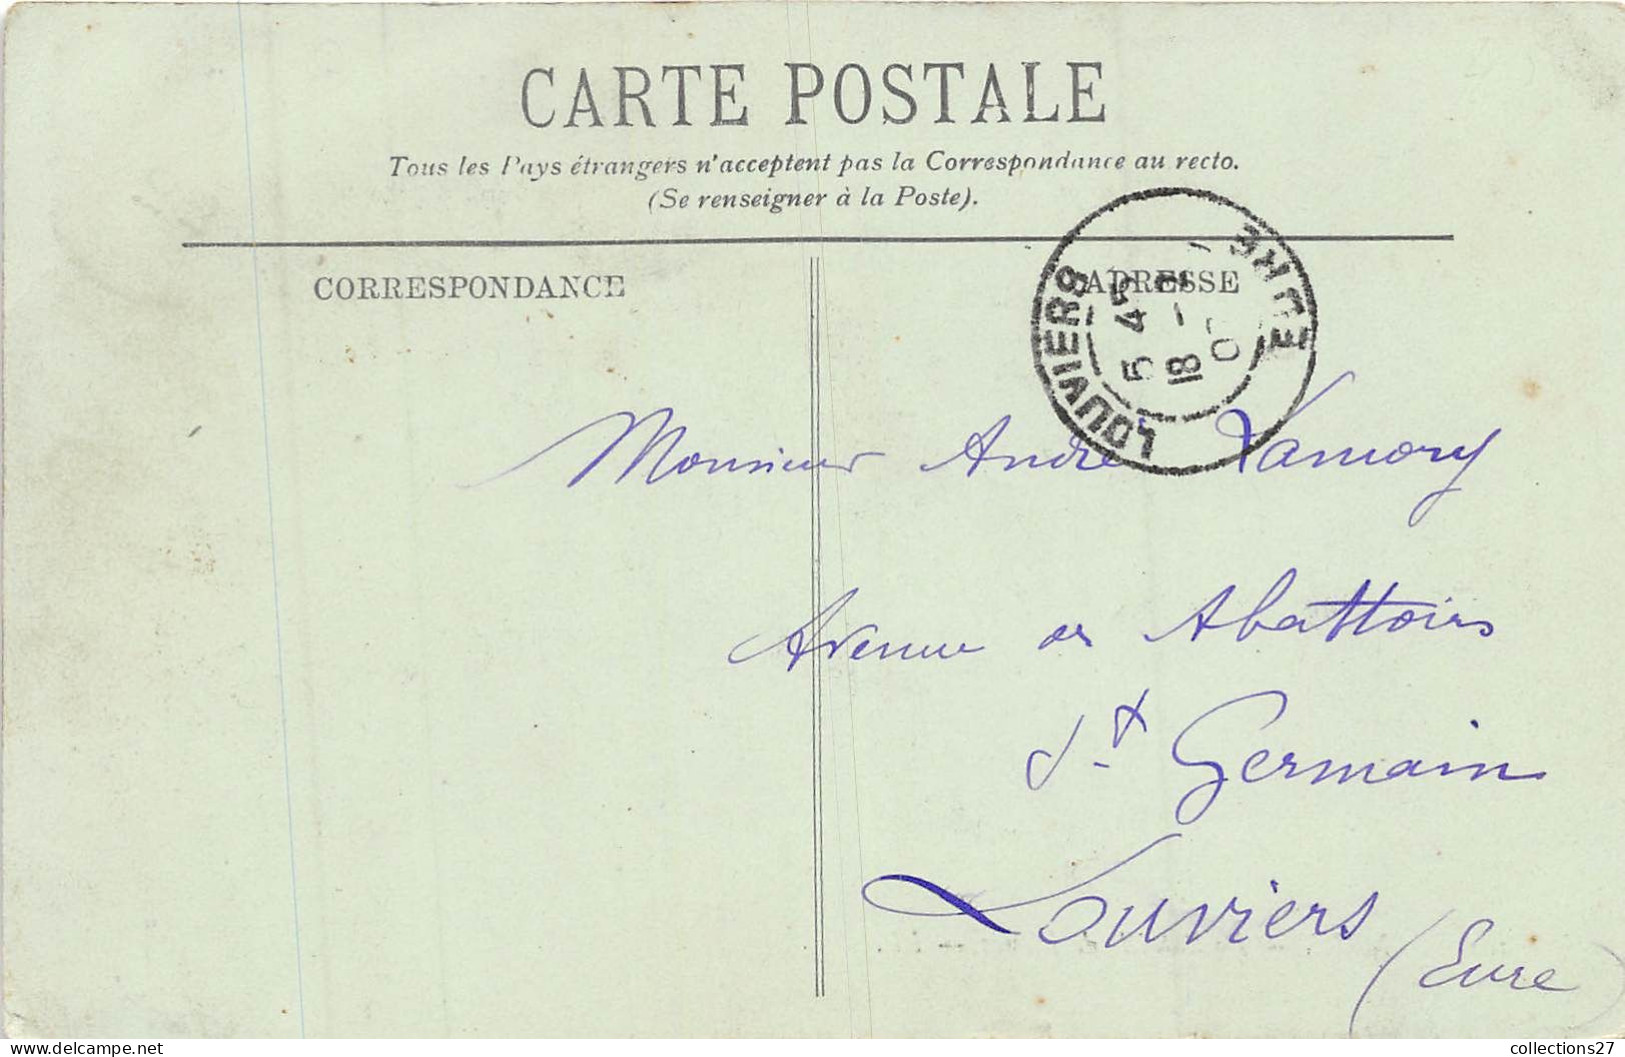 CARTE POSTALE
Tous les Pays étrangers n'acceptent pas la Correspondance au recto.
(Se renseigner à la Poste).
CORRESPONDANCE
ADRESSE
LOUVIERS
EURE
5 45
18 -
Monsieur André Lamory
Avenue des Abattoirs
St Germain
Louviers
(Eure
collections27